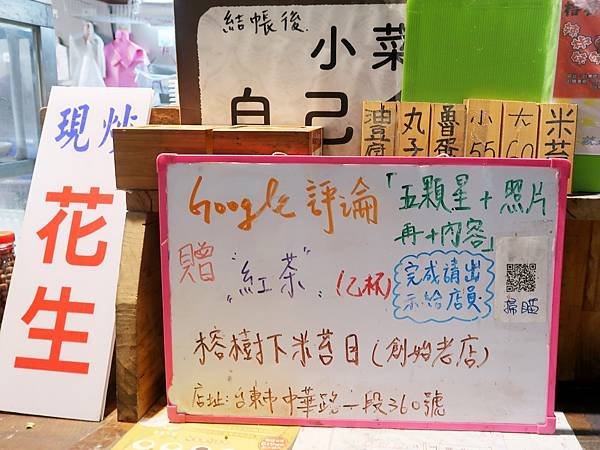 結帳後
小菜
自己
油豆腐
丸子
魯蛋
小 55
大 60
米苔
現炒
花生
Google 評論「五顆星+照片
再+內容」
贈 "紅茶" (乙杯)
完成請出
示給店員
掃瞄
榕樹下米苔目(創始老店)
店址:台東市中華路一段360號